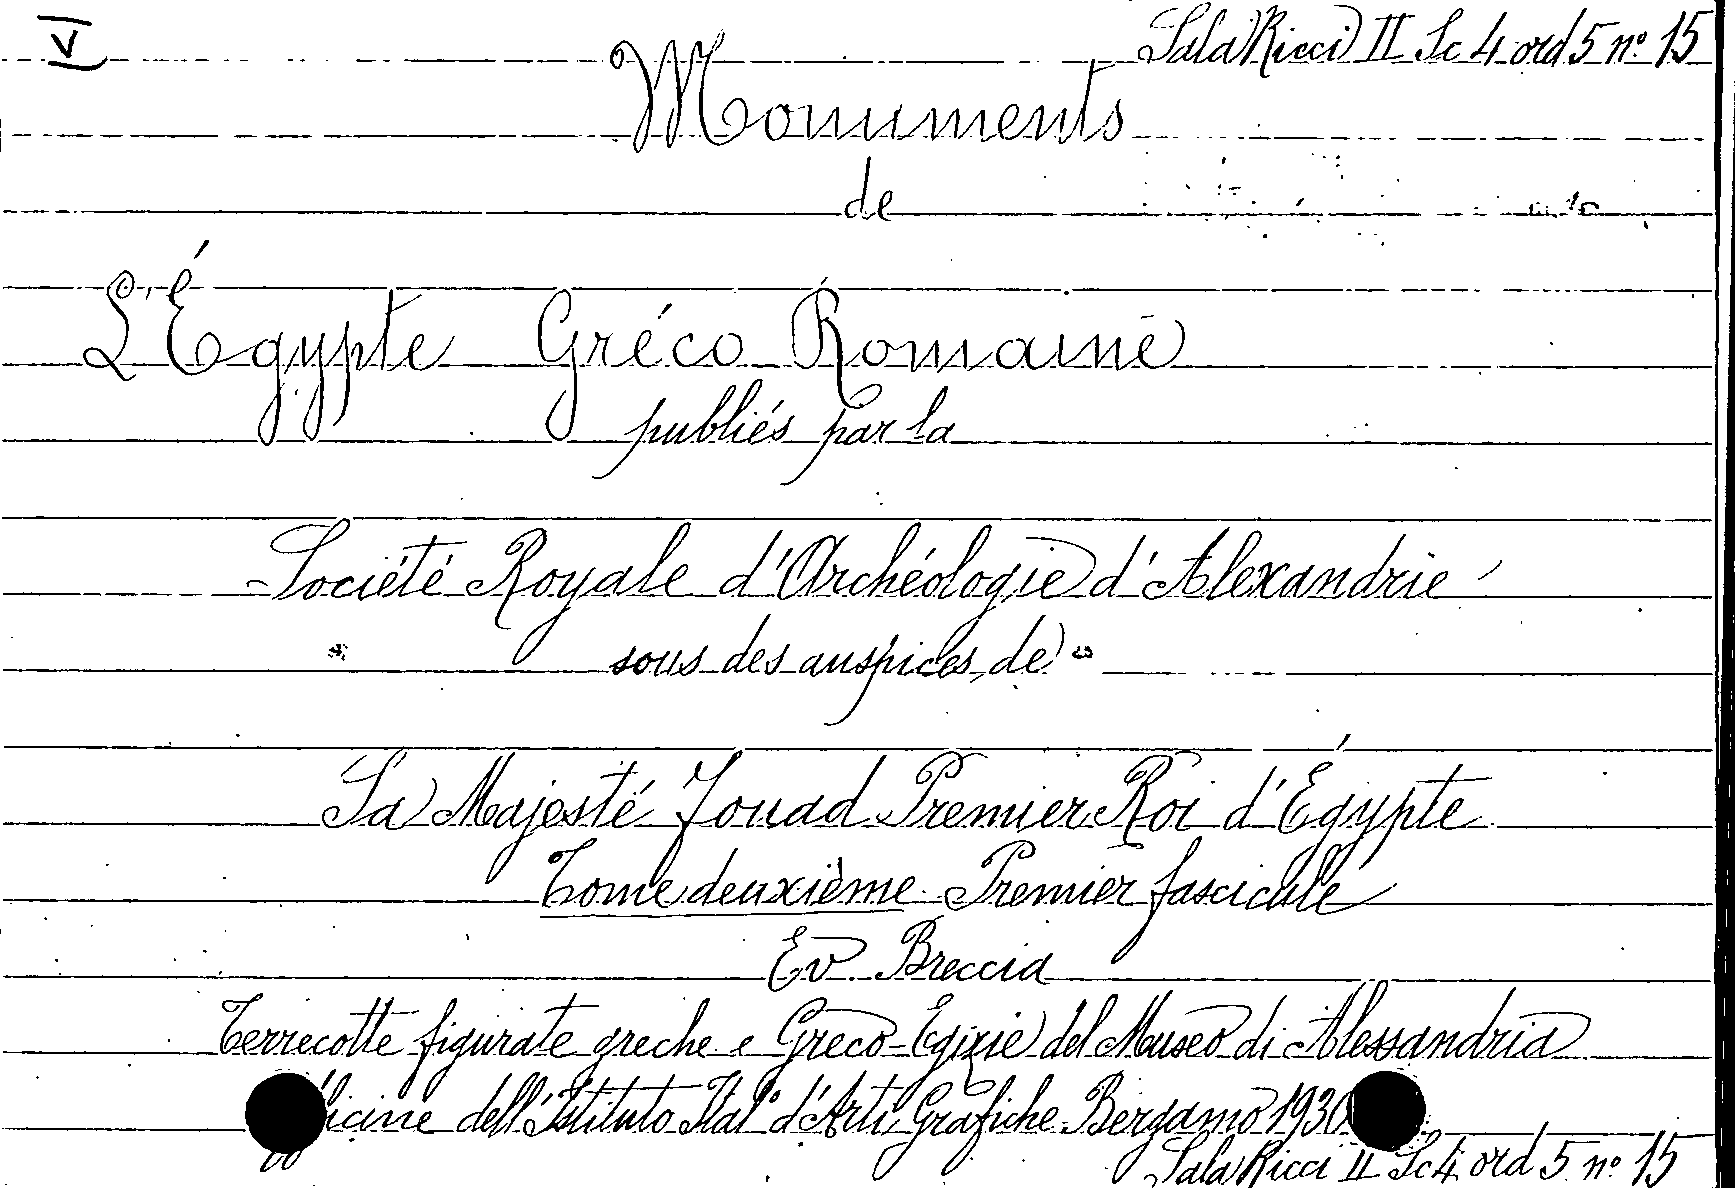 V
Sala Ricci II Sc 4 ord 5 nº 15
Monuments
de
L'Égypte Gréco Romaine
publiés par la
Société Royale d'Archéologie d'Alexandrie
sous des auspices de
Sa Majesté Fouad Premier Roi d'Égypte
Tome deuxième Premier fascicule
Ev Breccia
Terrecotte figurate greche e Greco-Egizie del Museo di Alessandria
dell'Istituto Ital° d'Arti Grafiche Bergamo 1930
Sala Ricci II Sc 4 ord 5 nº 15